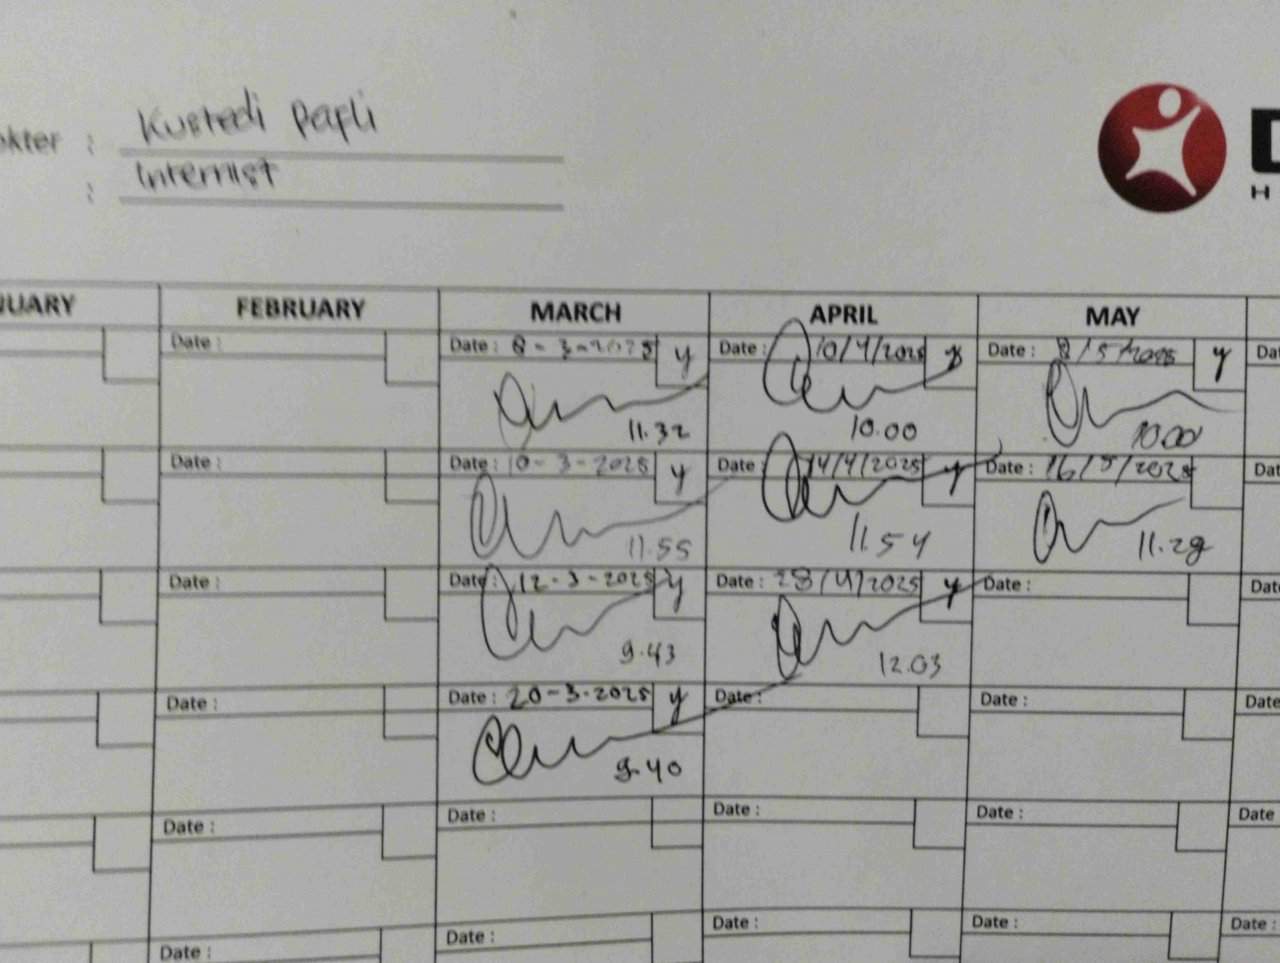 okter : Kustedi Pafli
: Internist
D
H
UARY FEBRUARY MARCH APRIL MAY
Date : Date : 8-3-2025 y Date : 10/4/2025 y Date : 8/5/2025 y Dat
11.32 10.00 10.00
Date : Date : 10-3-2025 y Date 14/4/2025 y Date : 16/5/2025 Dat
11.55 11.54 11.28
Date : Date : 12-3-2025 y Date : 28/4/2025 y Date : Dat
9.43 12.03
Date : Date : 20-3-2025 y Date : Date : Date
9.40
Date : Date : Date : Date : Date
Date : Date : Date : Date : Date :